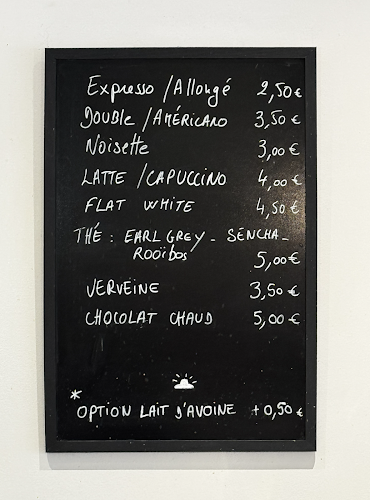 Expresso / Allongé 2,50 €
Double / AMÉRICANO 3,50 €
Noisette 3,00 €
LATTE / CAPUCCINO 4,00 €
FLAT WHITE 4,50 €
THÉ : EARL GREY - SENCHA -
Rooïbos 5,00 €
VERVEINE 3,50 €
CHOCOLAT CHAUD 5,00 €
* OPTION LAIT D'AVOINE + 0,50 €